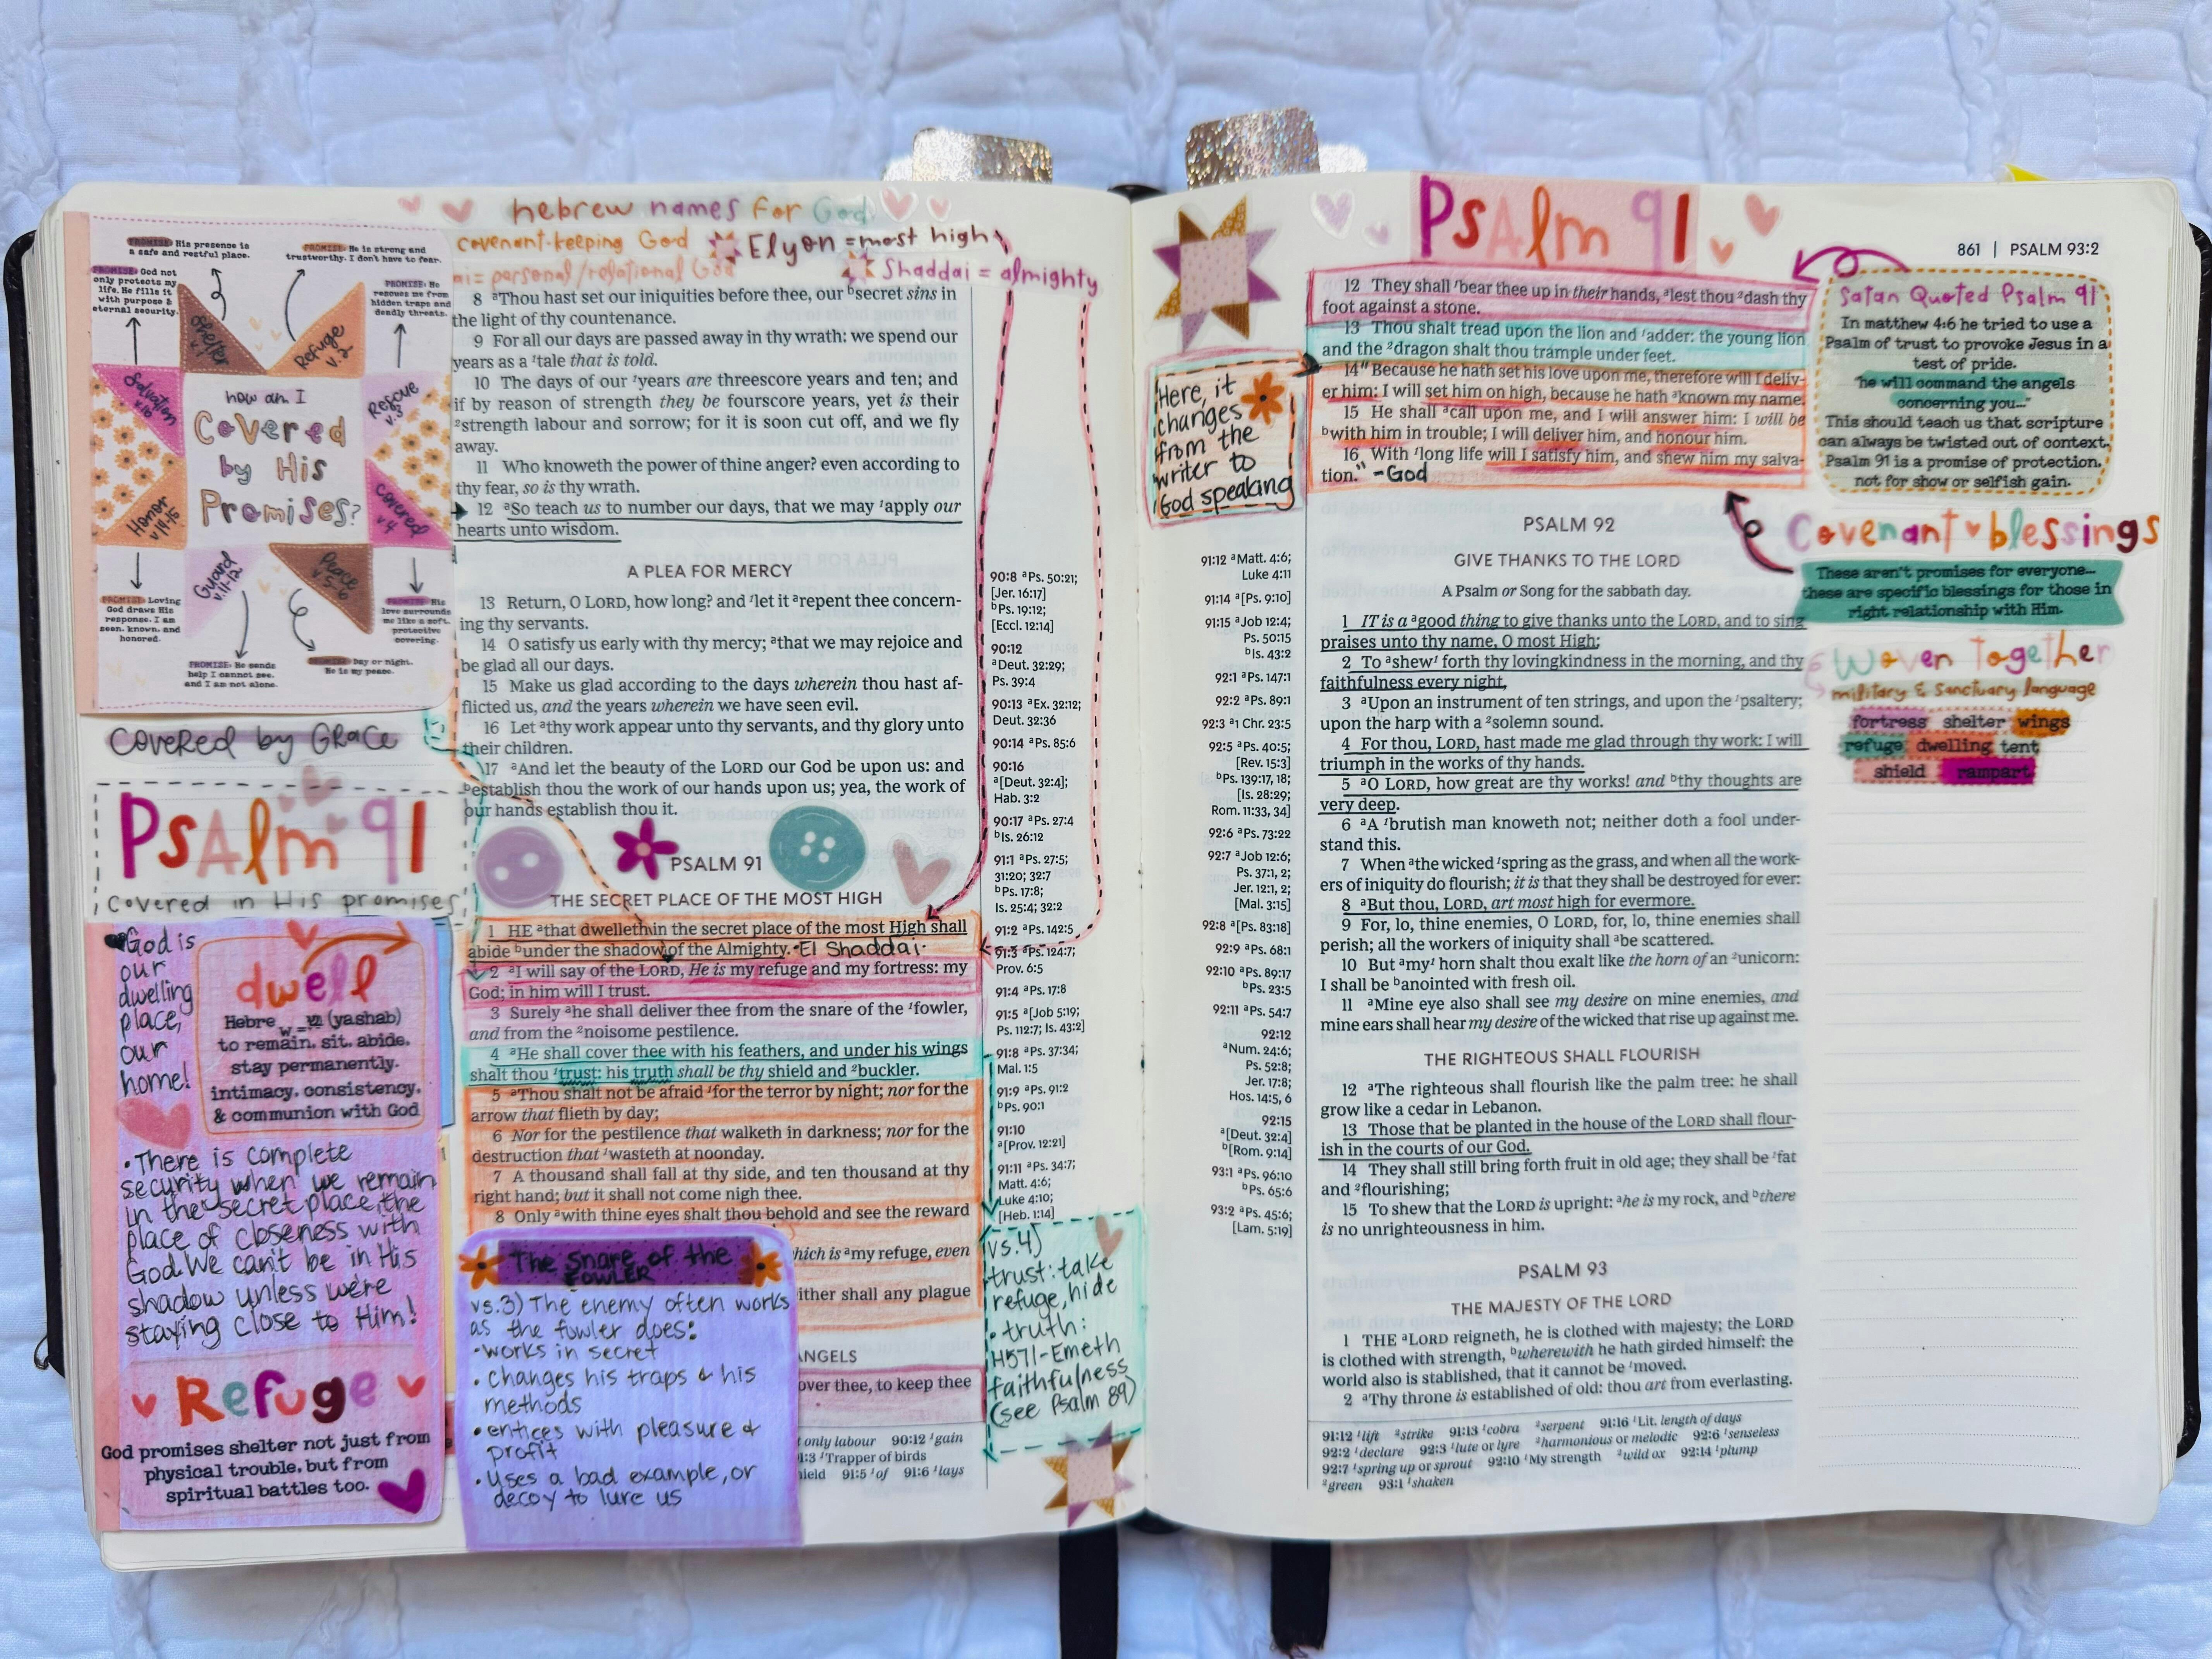 hebrew names for God
covenant-keeping God Elyon = most high
= personal/relational God Shaddai = almighty
PROMISE: His presence is
a safe and restful place.
PROMISE: He is strong and
trustworthy. I don't have to fear.
PROMISE: God not
only protects my
life, He fills it
with purpose &
eternal security.
PROMISE: He
rescues me from
hidden traps and
deadly threats.
Shelter
v.1
Refuge
v.2
Salvation
v.16
Rescue
v.3
how am I
Covered
by His
Promises?
Honor
v.14-15
Covered
v.4
Guard
v.11-12
Peace
v.5-6
PROMISE: Loving
God draws His
response. I am
seen, known, and
honored.
PROMISE: His
love surrounds
me like a soft,
protective
covering.
PROMISE: He sends
help I cannot see,
and I am not alone.
PROMISE: Day or night,
He is my peace.
Covered by Grace
Psalm 91
Covered in His promises
God is
our
dwelling
place,
our
home!
dwell
Hebre
w = (yashab)
to remain, sit, abide,
stay permanently.
intimacy, consistency,
& communion with God
• There is complete
security when we remain
in the secret place, the
place of closeness with
God. We can't be in His
shadow unless we're
staying close to Him!
Refuge
God promises shelter not just from
physical trouble, but from
spiritual battles too.
8 aThou hast set our iniquities before thee, our bsecret sins in
the light of thy countenance.
9 For all our days are passed away in thy wrath: we spend our
years as a 1tale that is told.
10 The days of our 1years are threescore years and ten; and
if by reason of strength they be fourscore years, yet is their
2strength labour and sorrow; for it is soon cut off, and we fly
away.
11 Who knoweth the power of thine anger? even according to
thy fear, so is thy wrath.
12 aSo teach us to number our days, that we may 1apply our
hearts unto wisdom.
A PLEA FOR MERCY
13 Return, O LORD, how long? and 1let it arepent thee concern-
ing thy servants.
14 O satisfy us early with thy mercy; athat we may rejoice and
be glad all our days.
15 Make us glad according to the days wherein thou hast af-
flicted us, and the years wherein we have seen evil.
16 Let athy work appear unto thy servants, and thy glory unto
their children.
17 aAnd let the beauty of the LORD our God be upon us: and
bestablish thou the work of our hands upon us; yea, the work of
our hands establish thou it.
PSALM 91
THE SECRET PLACE OF THE MOST HIGH
1 HE athat dwelleth in the secret place of the most High shall
abide bunder the shadow of the Almighty. •El Shaddai•
2 aI will say of the LORD, He is my refuge and my fortress: my
God; in him will I trust.
3 Surely ahe shall deliver thee from the snare of the 1fowler,
and from the 2noisome pestilence.
4 aHe shall cover thee with his feathers, and under his wings
shalt thou 1trust: his truth shall be thy shield and 2buckler.
5 aThou shalt not be afraid 1for the terror by night; nor for the
arrow that flieth by day;
6 Nor for the pestilence that walketh in darkness; nor for the
destruction that 1wasteth at noonday.
7 A thousand shall fall at thy side, and ten thousand at thy
right hand; but it shall not come nigh thee.
8 Only awith thine eyes shalt thou behold and see the reward
hich is amy refuge, even
ither shall any plague
ANGELS
over thee, to keep thee
only labour 90:12 1gain
1:3 1Trapper of birds
ield 91:5 1of 91:6 1lays
The Snare of the
FOWLER
vs.3) The enemy often works
as the fowler does:
•works in secret
• changes his traps & his
methods
•entices with pleasure &
profit
•uses a bad example, or
decoy to lure us
90:8 aPs. 50:21;
[Jer. 16:17]
bPs. 19:12;
[Eccl. 12:14]
90:12
aDeut. 32:29;
Ps. 39:4
90:13 aEx. 32:12;
Deut. 32:36
90:14 aPs. 85:6
90:16
a[Deut. 32:4];
Hab. 3:2
90:17 aPs. 27:4
bIs. 26:12
91:1 aPs. 27:5;
31:20; 32:7
bPs. 17:8;
Is. 25:4; 32:2
91:2 aPs. 142:5
91:3 aPs. 124:7;
Prov. 6:5
91:4 aPs. 17:8
91:5 a[Job 5:19;
Ps. 112:7; Is. 43:2]
91:8 aPs. 37:34;
Mal. 1:5
91:9 aPs. 91:2
bPs. 90:1
91:10
a[Prov. 12:21]
91:11 aPs. 34:7;
Matt. 4:6;
Luke 4:10;
[Heb. 1:14]
vs.4)
trust: take
refuge, hide
• truth:
H571-Emeth
faithfulness
(see Psalm 89)
Psalm 91
861 | PSALM 93:2
12 They shall 1bear thee up in their hands, alest thou 2dash thy
foot against a stone.
13 Thou shalt tread upon the lion and 1adder: the young lion
and the 2dragon shalt thou trample under feet.
14" Because he hath set his love upon me, therefore will I deliv-
er him: I will set him on high, because he hath aknown my name.
15 He shall acall upon me, and I will answer him: I will be
bwith him in trouble; I will deliver him, and honour him.
16 With 1long life will I satisfy him, and shew him my salva-
tion." -God
Here, it
changes
from the
writer to
God speaking
Satan Quoted Psalm 91
In matthew 4:6 he tried to use a
Psalm of trust to provoke Jesus in a
test of pride.
"he will command the angels
concerning you..."
This should teach us that scripture
can always be twisted out of context.
Psalm 91 is a promise of protection,
not for show or selfish gain.
Covenant blessings
These aren't promises for everyone...
these are specific blessings for those in
right relationship with Him.
Woven Together
military & Sanctuary language
fortress shelter wings
refuge dwelling tent
shield rampart
91:12 aMatt. 4:6;
Luke 4:11
91:14 a[Ps. 9:10]
91:15 aJob 12:4;
Ps. 50:15
bIs. 43:2
92:1 aPs. 147:1
92:2 aPs. 89:1
92:3 a1 Chr. 23:5
92:5 aPs. 40:5;
[Rev. 15:3]
bPs. 139:17, 18;
[Is. 28:29;
Rom. 11:33, 34]
92:6 aPs. 73:22
92:7 aJob 12:6;
Ps. 37:1, 2;
Jer. 12:1, 2;
[Mal. 3:15]
92:8 a[Ps. 83:18]
92:9 aPs. 68:1
92:10 aPs. 89:17
bPs. 23:5
92:11 aPs. 54:7
92:12
aNum. 24:6;
Ps. 52:8;
Jer. 17:8;
Hos. 14:5, 6
92:15
a[Deut. 32:4]
b[Rom. 9:14]
93:1 aPs. 96:10
bPs. 65:6
93:2 aPs. 45:6;
[Lam. 5:19]
PSALM 92
GIVE THANKS TO THE LORD
A Psalm or Song for the sabbath day.
1 IT is a agood thing to give thanks unto the LORD, and to sing
praises unto thy name, O most High;
2 To ashew1 forth thy lovingkindness in the morning, and thy
faithfulness every night,
3 aUpon an instrument of ten strings, and upon the 1psaltery;
upon the harp with a 2solemn sound.
4 For thou, LORD, hast made me glad through thy work: I will
triumph in the works of thy hands.
5 aO LORD, how great are thy works! and bthy thoughts are
very deep.
6 aA 1brutish man knoweth not; neither doth a fool under-
stand this.
7 When athe wicked 1spring as the grass, and when all the work-
ers of iniquity do flourish; it is that they shall be destroyed for ever:
8 aBut thou, LORD, art most high for evermore.
9 For, lo, thine enemies, O LORD, for, lo, thine enemies shall
perish; all the workers of iniquity shall abe scattered.
10 But amy1 horn shalt thou exalt like the horn of an 2unicorn:
I shall be banointed with fresh oil.
11 aMine eye also shall see my desire on mine enemies, and
mine ears shall hear my desire of the wicked that rise up against me.
THE RIGHTEOUS SHALL FLOURISH
12 aThe righteous shall flourish like the palm tree: he shall
grow like a cedar in Lebanon.
13 Those that be planted in the house of the LORD shall flour-
ish in the courts of our God.
14 They shall still bring forth fruit in old age; they shall be 1fat
and 2flourishing;
15 To shew that the LORD is upright: ahe is my rock, and bthere
is no unrighteousness in him.
PSALM 93
THE MAJESTY OF THE LORD
1 THE aLORD reigneth, he is clothed with majesty; the LORD
is clothed with strength, bwherewith he hath girded himself: the
world also is stablished, that it cannot be 1moved.
2 aThy throne is established of old: thou art from everlasting.
91:12 1lift 2strike 91:13 1cobra 2serpent 91:16 1Lit. length of days
92:2 1declare 92:3 1lute or lyre 2harmonious or melodic 92:6 1senseless
92:7 1spring up or sprout 92:10 1My strength 2wild ox 92:14 1plump
2green 93:1 1shaken